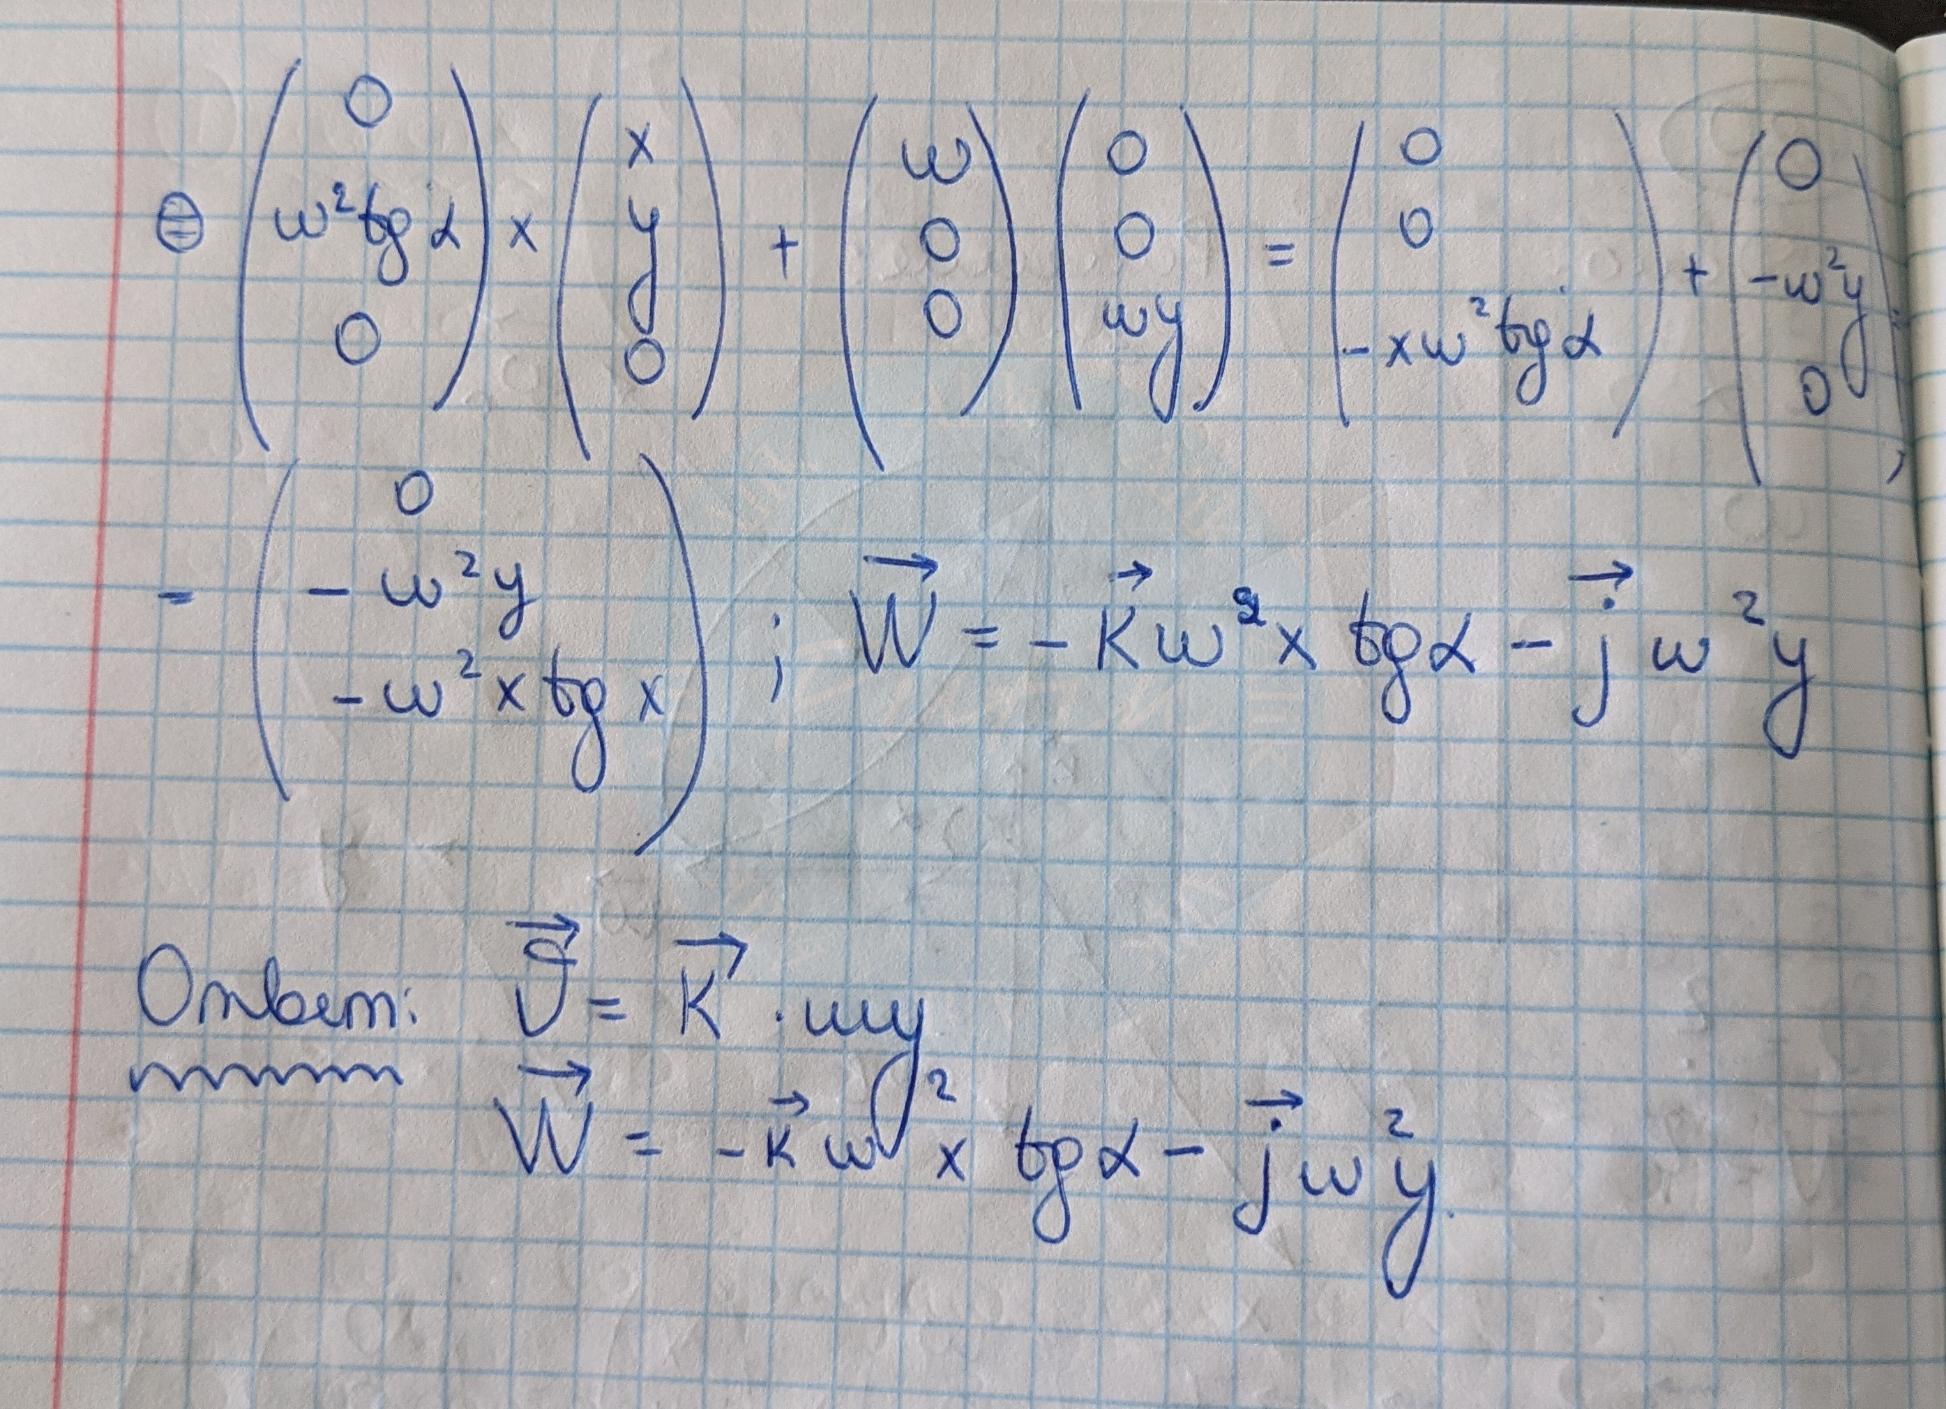 ⊜ (0 ω² tg α 0) × (x y 0) + (ω 0 0) (0 0 ωy) = (0 0 - xω² tg α) + (0 -ω²y 0) =
= (0 - ω²y - ω² x tg x) ; W⃗ = - K⃗ ω² x tg α - j⃗ ω² y
Ответ: V⃗ = K⃗ · ωy
W⃗ = - K⃗ ω² x tg α - j⃗ ω² y.